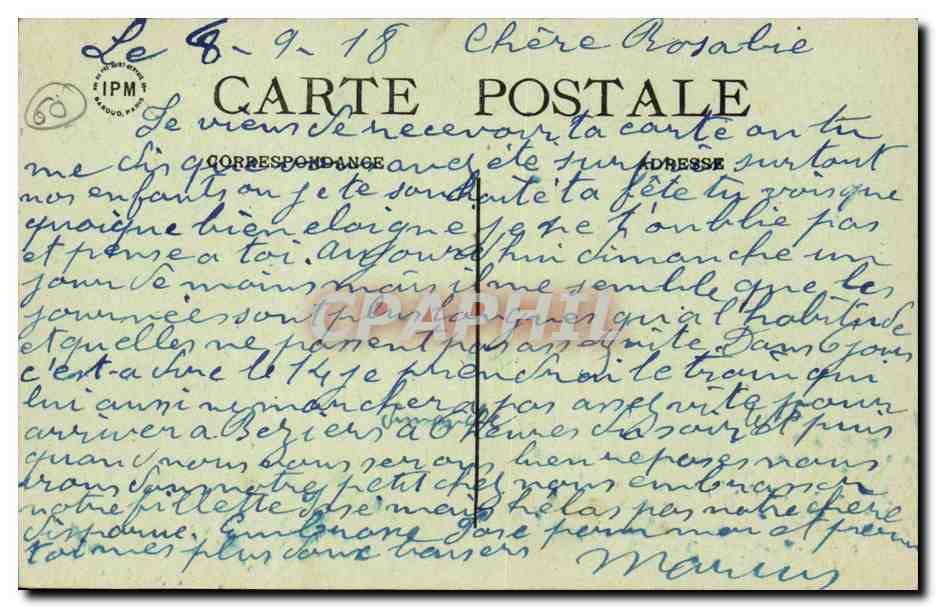 Le 8-9-18 Chère Rosalie
IPM
BAROUD, PARIS
60
CARTE POSTALE
Je viens de recevoir ta carte ou tu
CORRESPONDANCE ADRESSE
me dis que vous avez été surpris surtout
nos enfants ou je te souhaité ta fête tu vois que
quoique bien eloigne je ne t'oublie pas
et pense a toi. Aujourd'hui dimanche un
jour de moins mais il me semble que les
journées sont plus longues qu'a l'habitude
et quelles ne passent pas assez vite. Dans 6 jours
c'est-a dire le 14 je prendrai le train qui
CPAPHIL
lui aussi ne marchera pas assez vite pour
arriver a Beziers a 6 heures du soir et puis
quand nous nous serons bien reposes nous
irons dans notre petit chez nous embrasser
notre fillette José mais hélas pas notre chère
disparue. Embrasse José pour moi et
toi mes plus doux baisers Marius